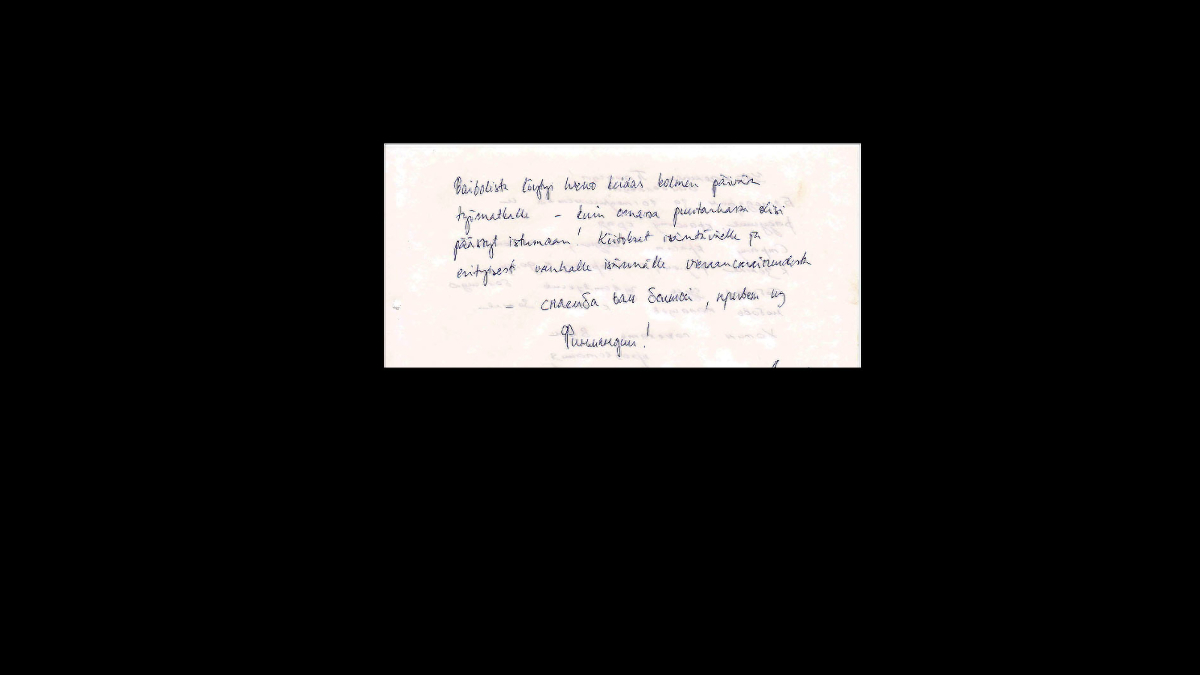 Baibolista löytyi hieno keidas kolmen päivän
työmatkalle – kuin omassa puutarhassa olisi
päässyt istumaan! Kiitokset isäntäväelle ja
erityisesti vanhalle isännälle vieraanvaraisuudesta
– спасиба вам большой, привет из
Финляндии!